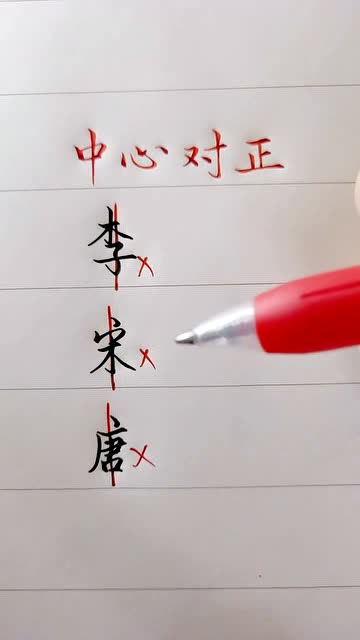 中心对正
李×
宋×
唐×